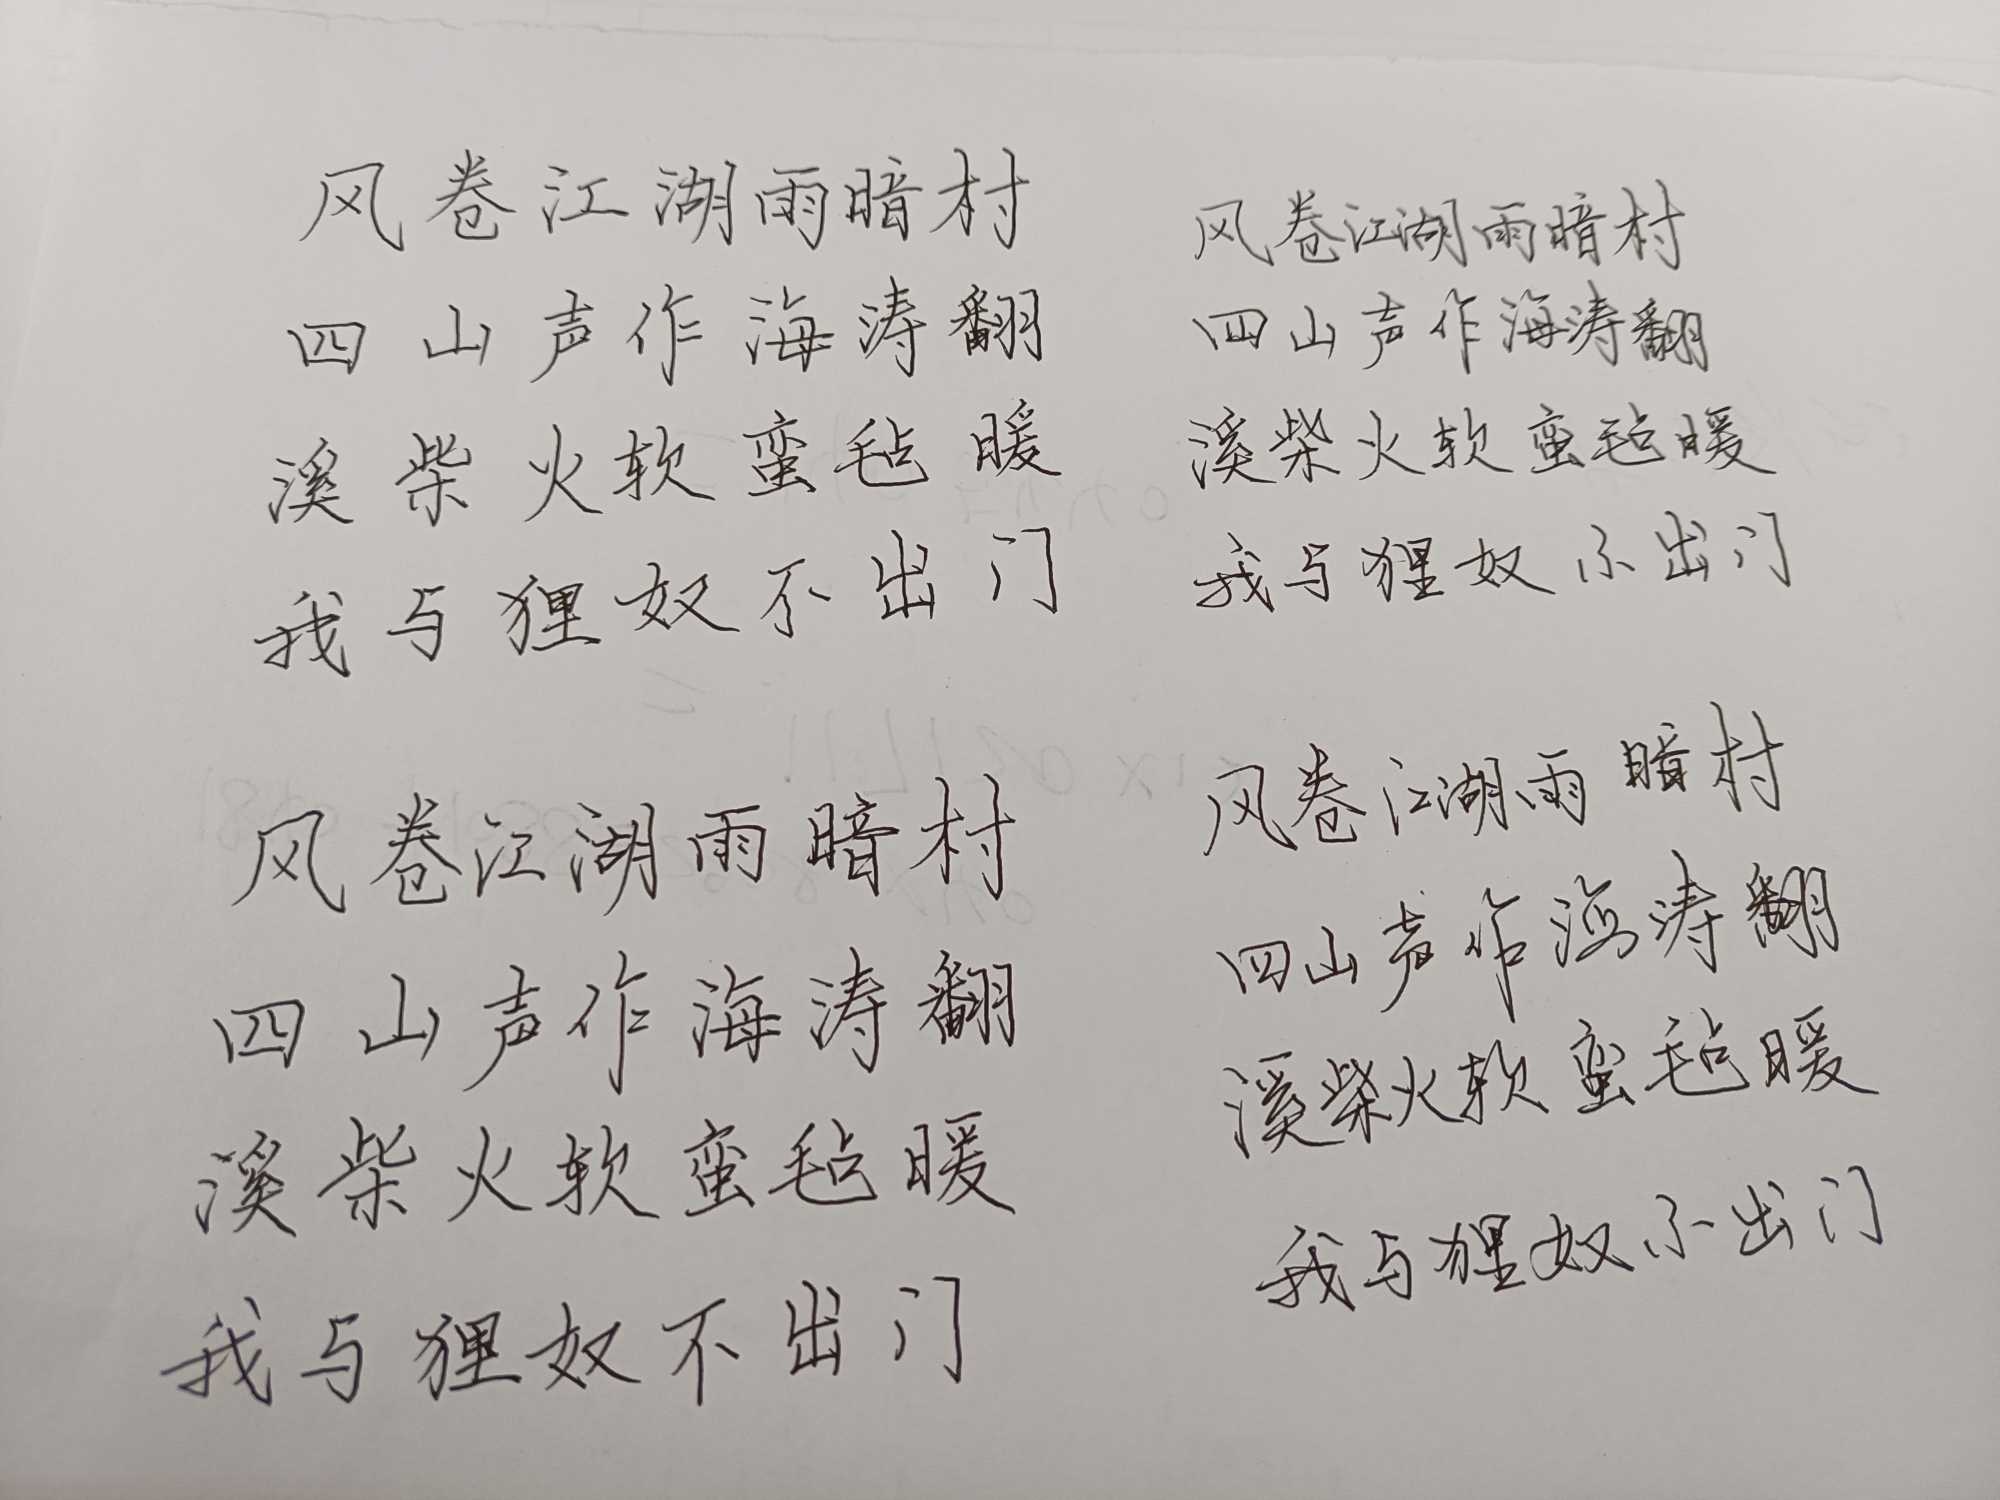 风卷江湖雨暗村
四山声作海涛翻
溪柴火软蛮毡暖
我与狸奴不出门
风卷江湖雨暗村
四山声作海涛翻
溪柴火软蛮毡暖
我与狸奴不出门
风卷江湖雨暗村
四山声作海涛翻
溪柴火软蛮毡暖
我与狸奴不出门
风卷江湖雨暗村
四山声作海涛翻
溪柴火软蛮毡暖
我与狸奴不出门